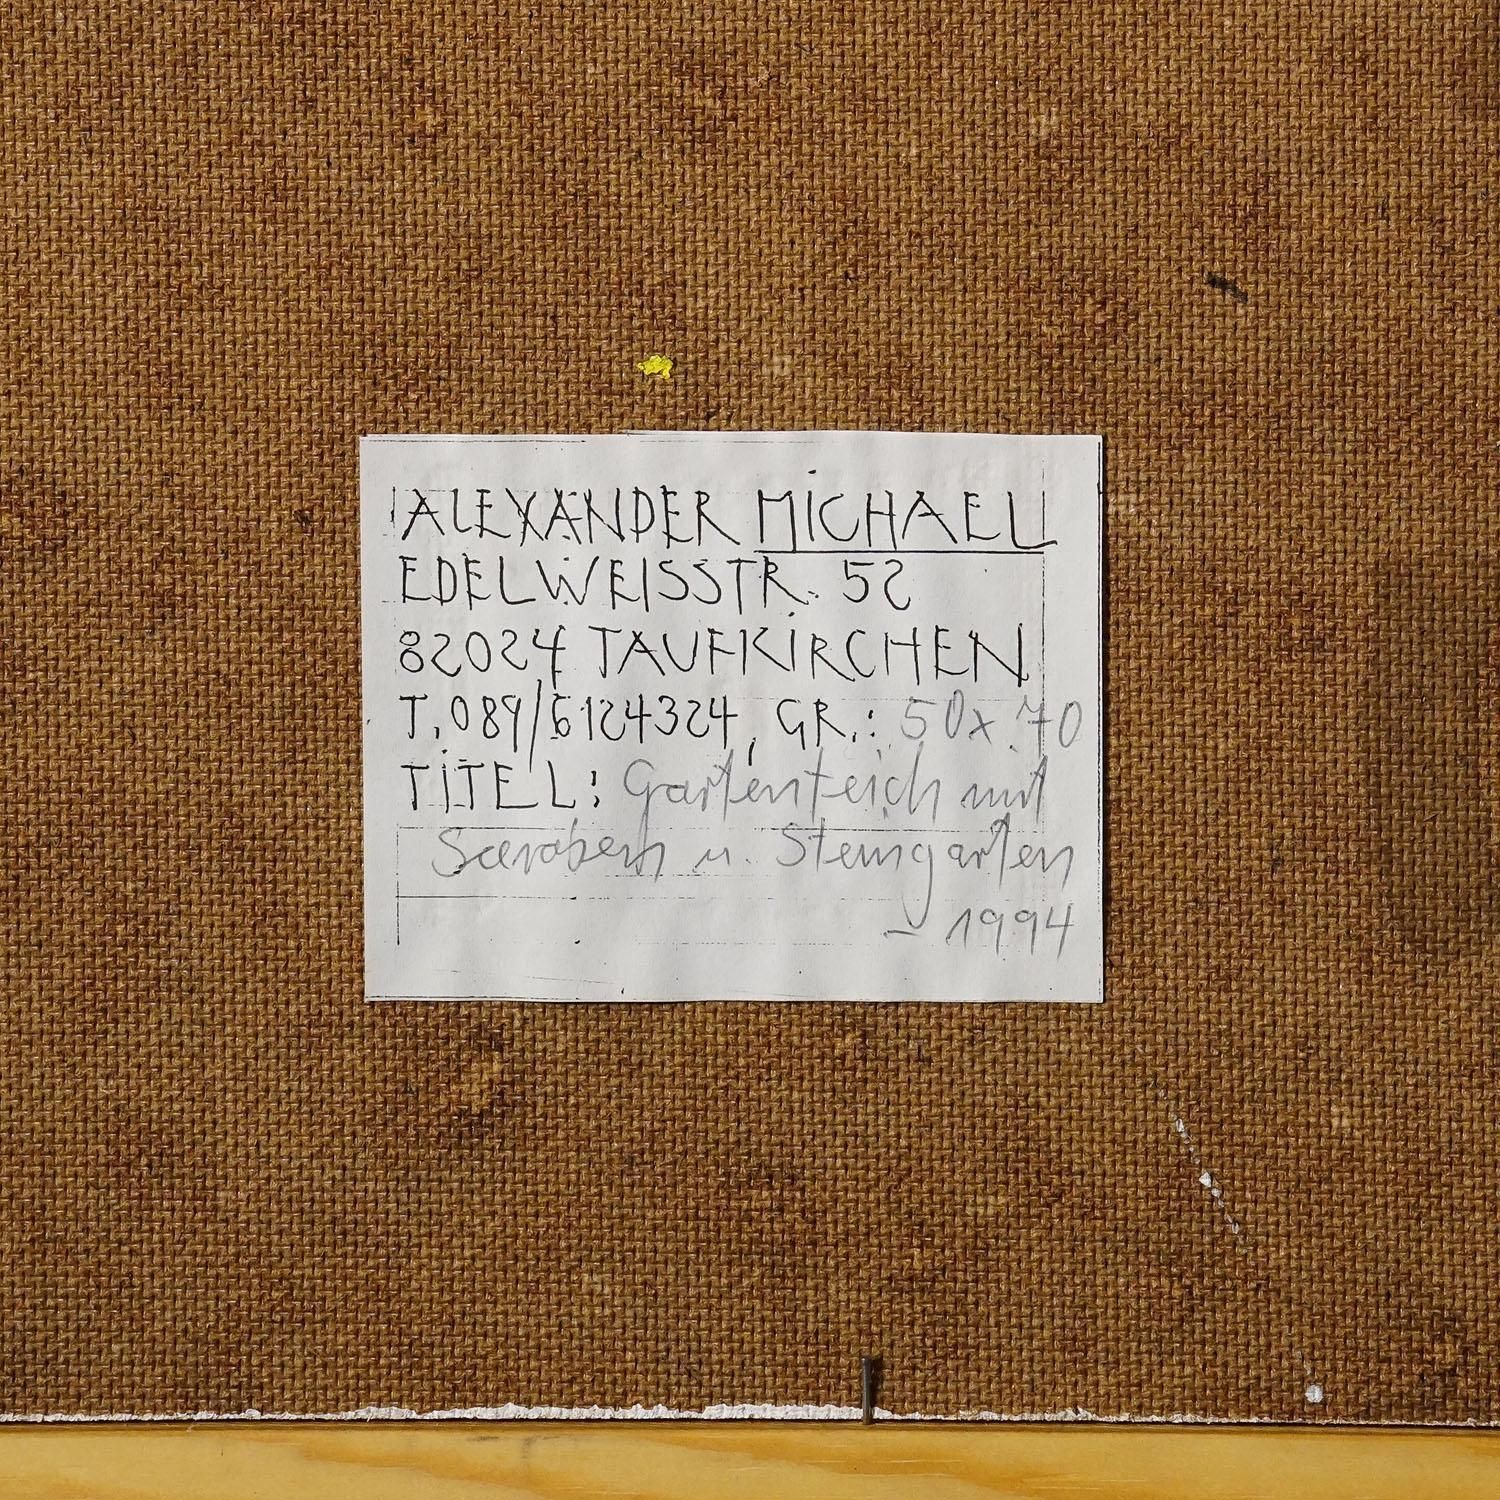 ALEXANDER MICHAEL
EDELWEISSTR. 52
82024 TAUFKIRCHEN
T. 089/6124324, GR.: 50x70
TITEL: Gartenteich mit
Seerosen u. Steingarten
- 1994